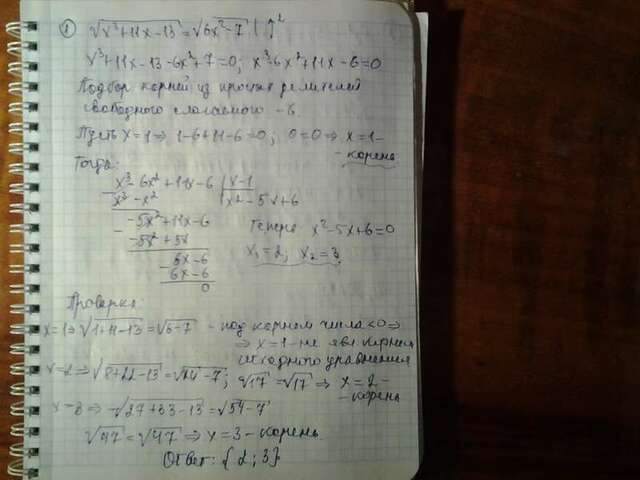 ① √x³+11x-13 = √6x²-7 | ↑²
x³+11x-13-6x²+7=0; x³-6x²+11x-6=0
Подбор корней из простых делителей
свободного слагаемого -6.
Пусть x=1 ⇒ 1-6+11-6=0; 0=0 ⇒ x=1-
- корень
Тогда:
x³-6x²+11x-6 | x-1
x³-x² | x²-5x+6
-5x²+11x-6
-5x²+5x
Теперь x²-5x+6=0
6x-6
x₁=2; x₂=3.
6x-6
0
Проверка:
x=1 ⇒ √1+11-13 = √6-7 - под корнем числа <0 ⇒
⇒ x=1 - не явл. корнем
исходного уравнения
x=2 ⇒ √8+22-13 = √24-7; √17=√17 ⇒ x=2-
- корень
x=3 ⇒ √27+33-13 = √54-7
√47=√47 ⇒ x=3 - корень.
Ответ: {2; 3}